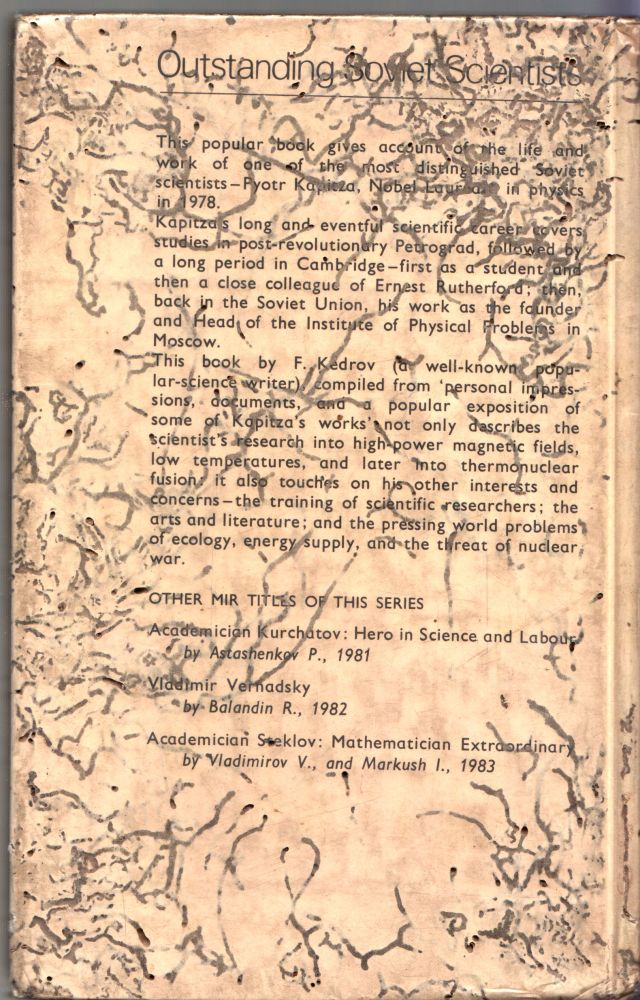 Outstanding Soviet Scientists
This popular book gives account of the life and
work of one of the most distinguished Soviet
scientists–Pyotr Kapitza, Nobel Laureate in physics
in 1978.
Kapitza's long and eventful scientific career covers
studies in post-revolutionary Petrograd, followed by
a long period in Cambridge–first as a student and
then a close colleague of Ernest Rutherford; then,
back in the Soviet Union, his work as the founder
and Head of the Institute of Physical Problems in
Moscow.
This book by F. Kedrov (a well-known popu-
lar-science writer), compiled from 'personal impres-
sions, documents, and a popular exposition of
some of Kapitza's works' not only describes the
scientist's research into high-power magnetic fields,
low temperatures, and later into thermonuclear
fusion: it also touches on his other interests and
concerns–the training of scientific researchers; the
arts and literature; and the pressing world problems
of ecology, energy supply, and the threat of nuclear
war.
OTHER MIR TITLES OF THIS SERIES
Academician Kurchatov: Hero in Science and Labour
by Astashenkov P., 1981
Vladimir Vernadsky
by Balandin R., 1982
Academician Steklov: Mathematician Extraordinary
by Vladimirov V., and Markush I., 1983